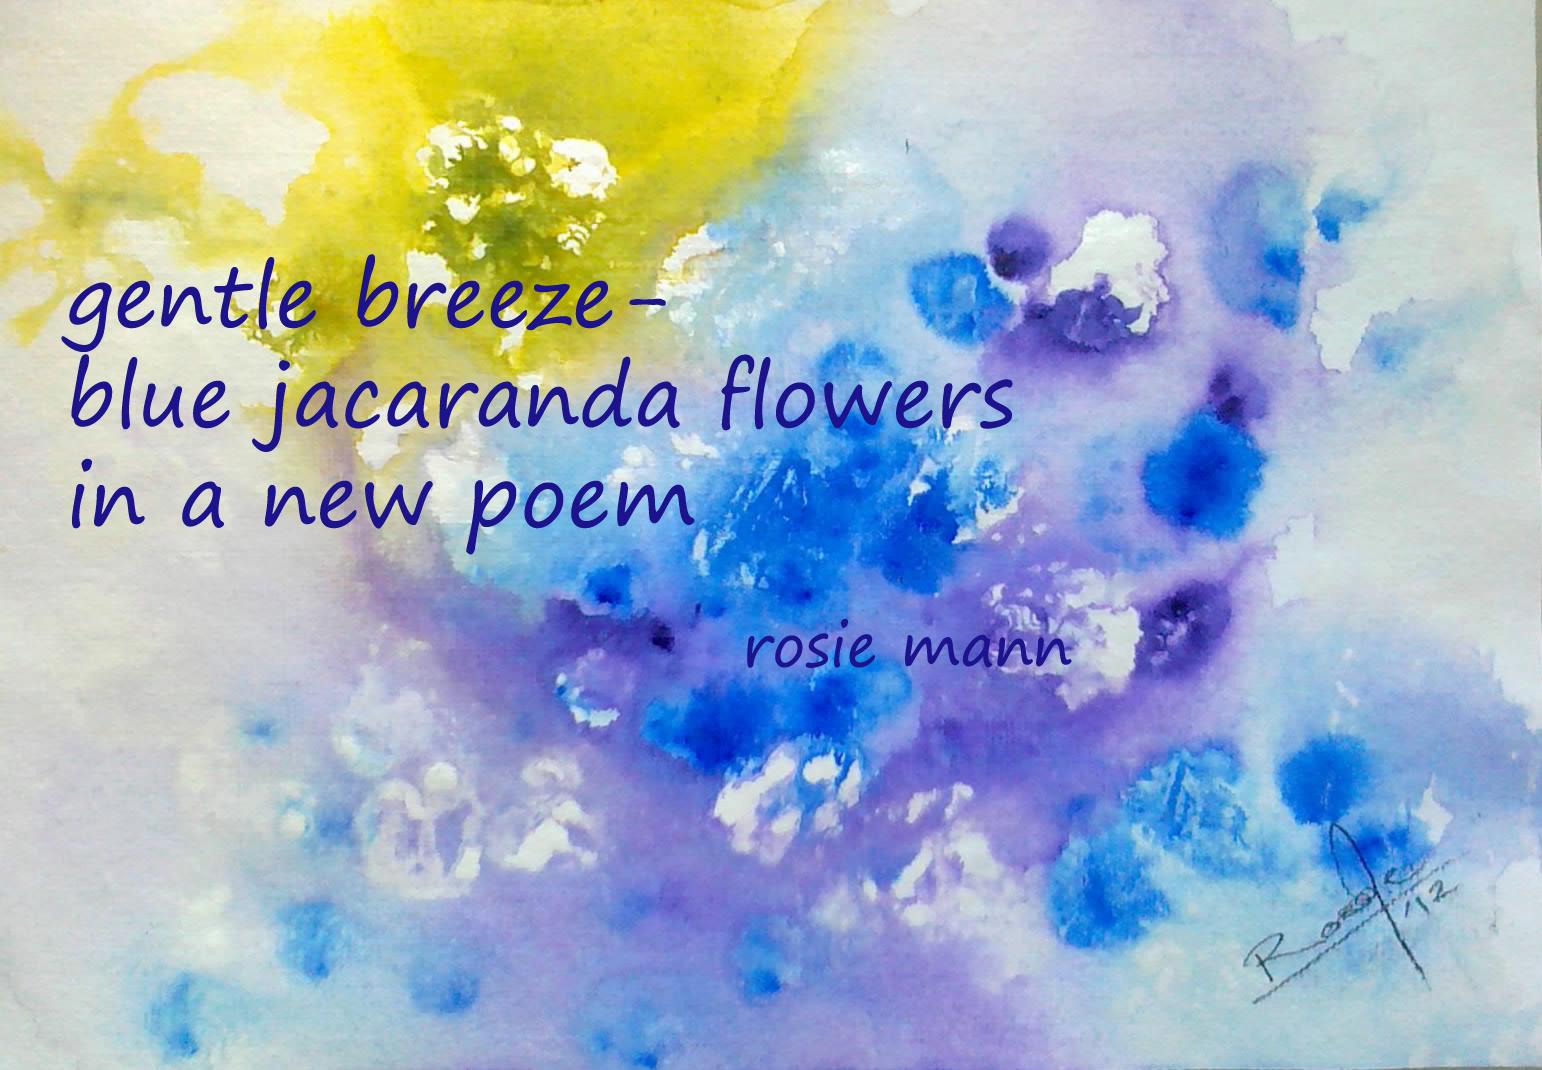 gentle breeze-
blue jacaranda flowers
in a new poem
rosie mann
'12